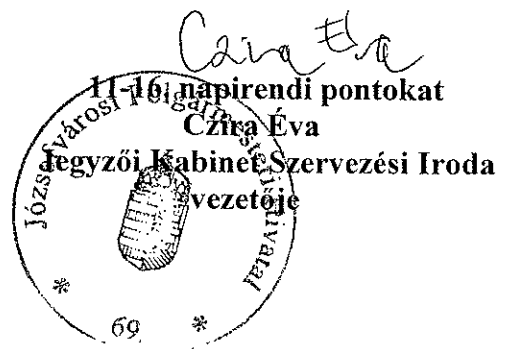 Czira Éva
11-16. napirendi pontokat
Czira Éva
Jegyzői Kabinet Szervezési Iroda
vezetője
Józsefvárosi Polgármesteri Hivatal
* 69 *